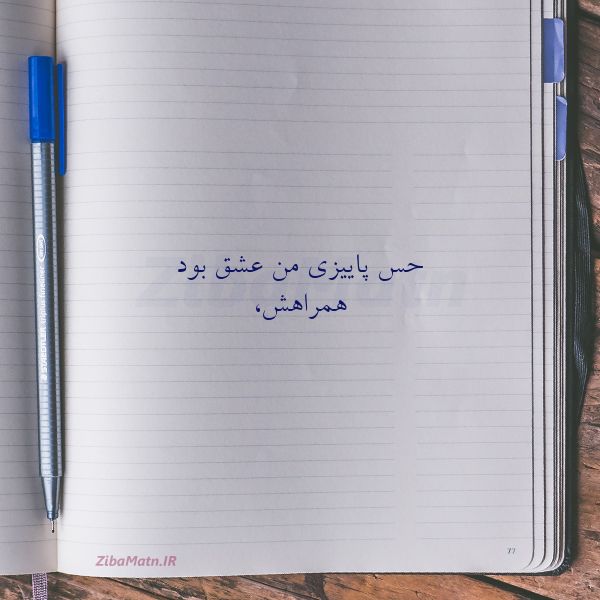 حس پاییزی من عشق بود
همراهش،
ZibaMatn.IR